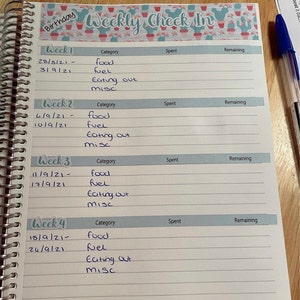 Birthday
Weekly Check In
Week 1 Category Spent Remaining
28/8/21 - Food
3/9/21 Fuel
Eating out
Misc
Week 2 Category Spent Remaining
4/9/21 - Food
10/9/21 Fuel
Eating out
Misc
Week 3 Category Spent Remaining
11/9/21 - Food
17/9/21 Fuel
Eating out
Misc
Week 4 Category Spent Remaining
18/9/21 - Food
24/9/21 Fuel
Eating out
Misc